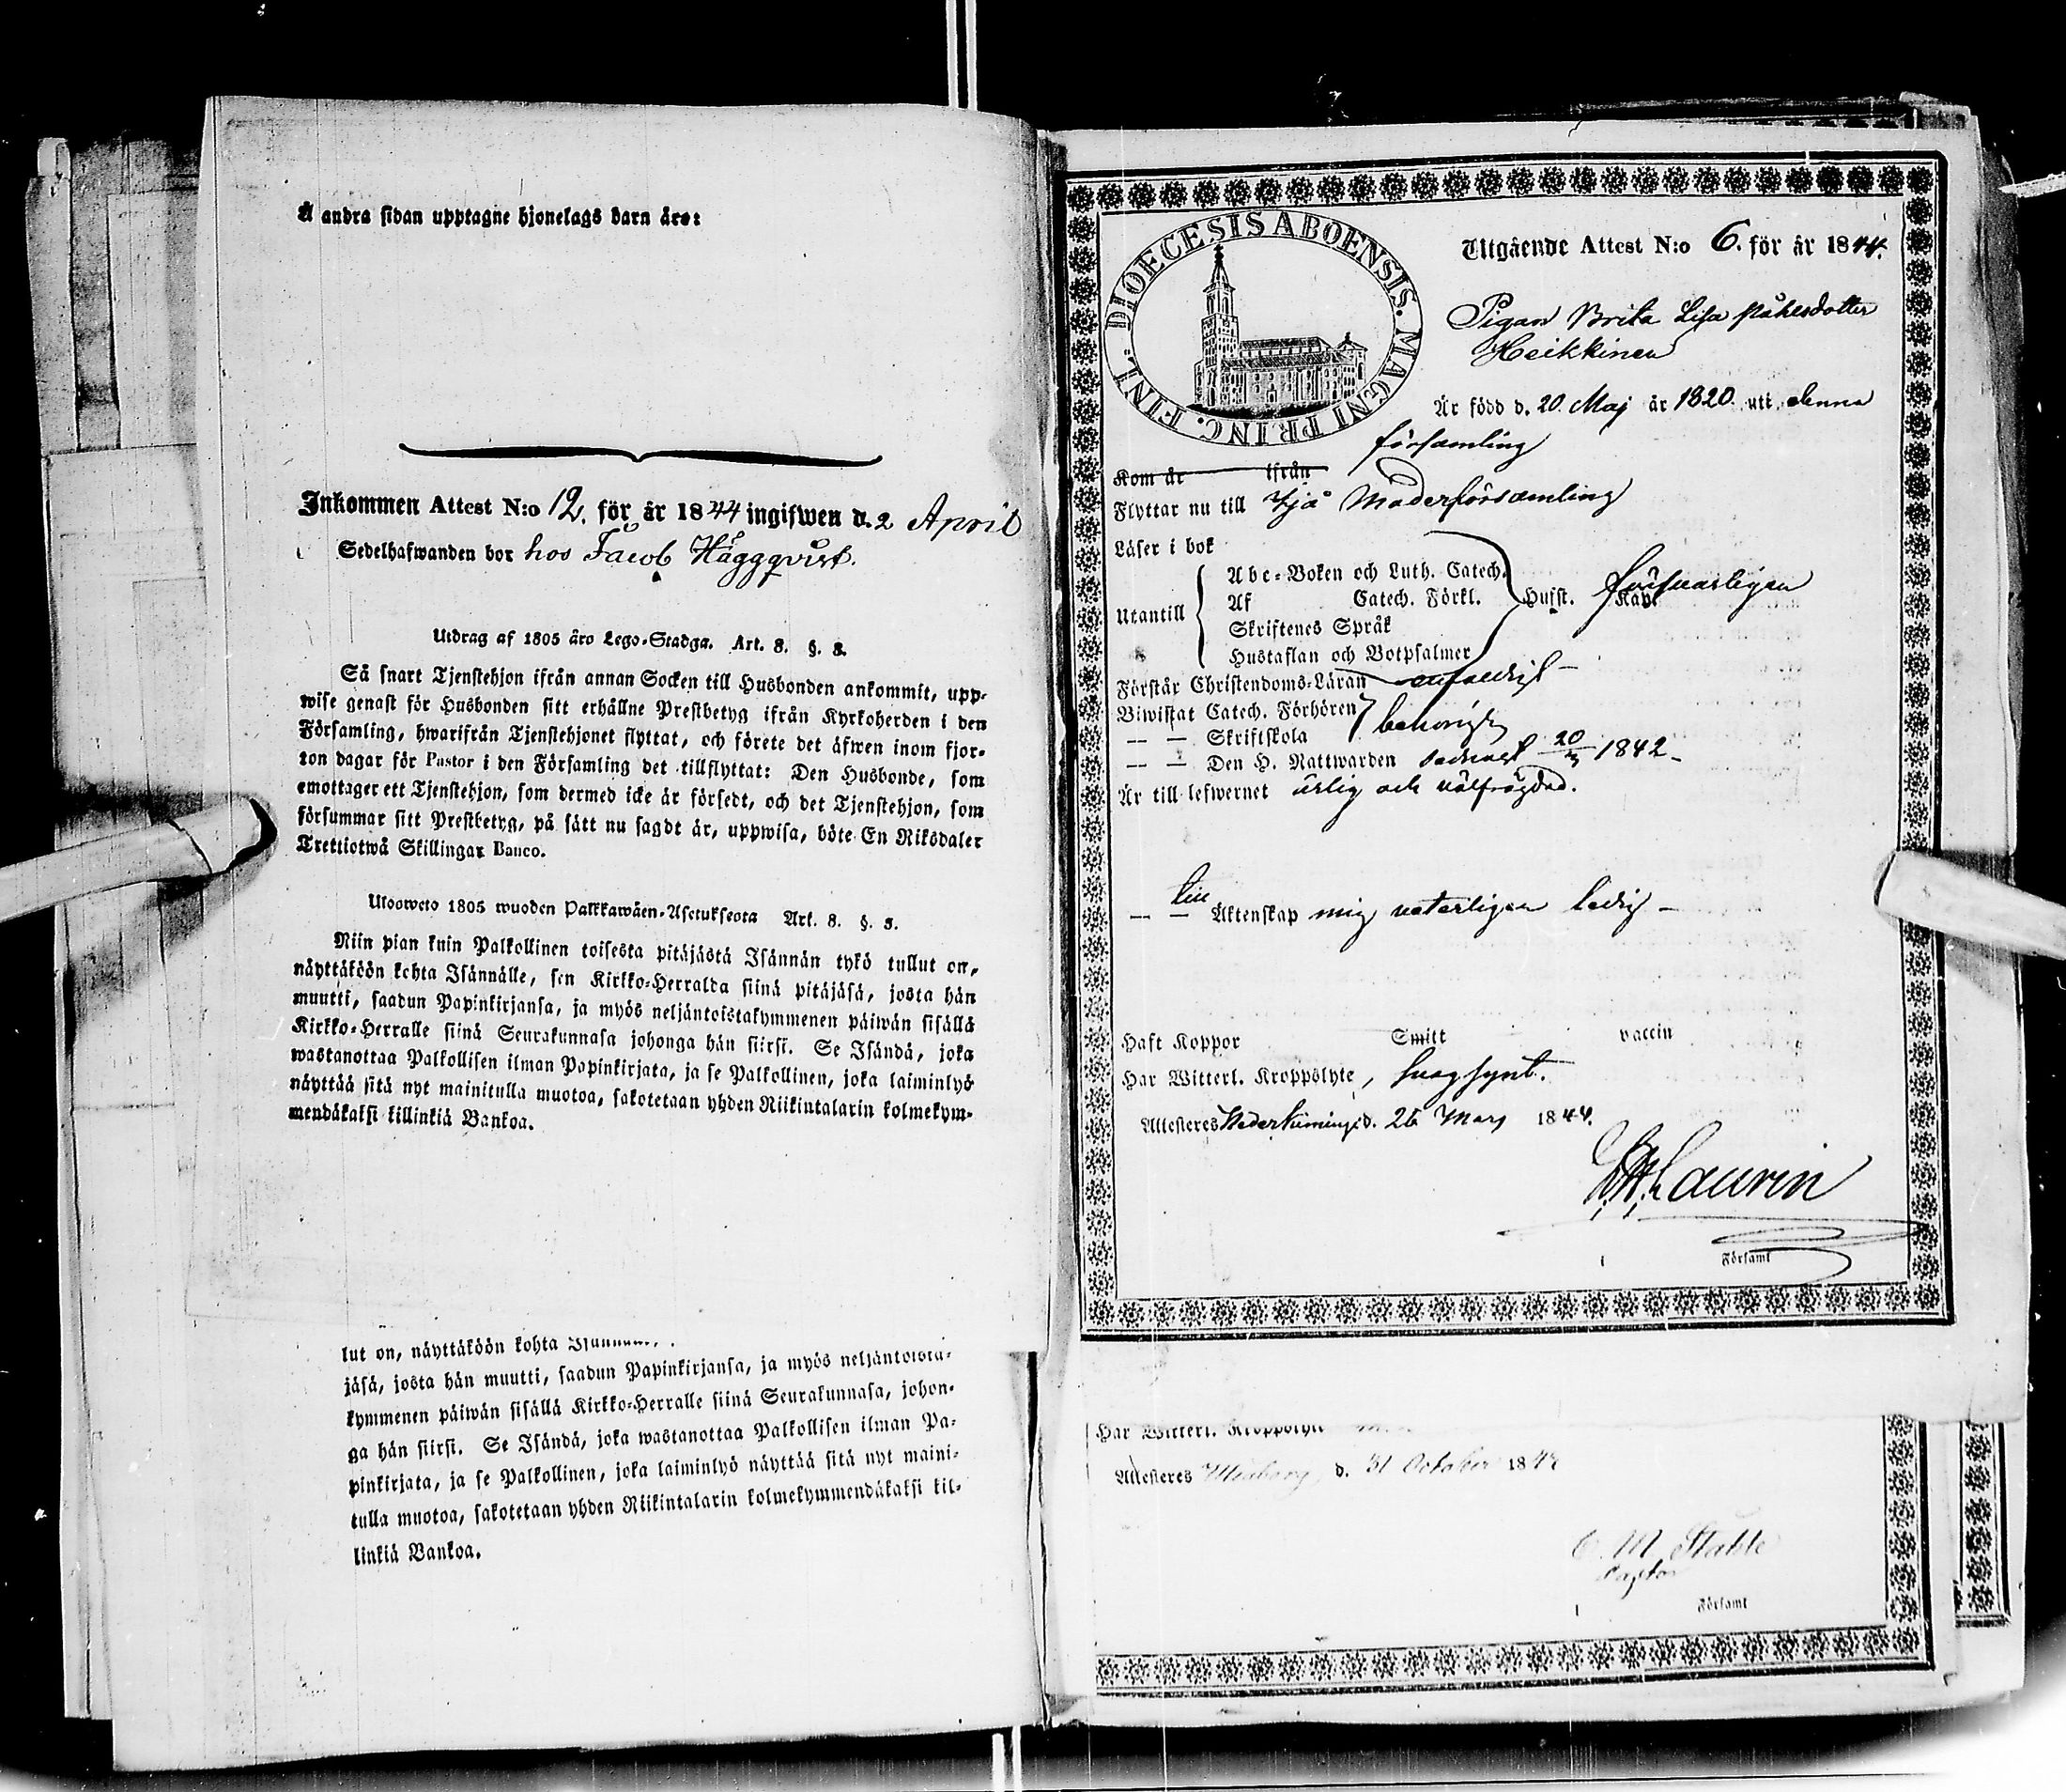 Å andra sidan upptagne hjonelags barn äro:
Inkommen Attest N:o 12. för år 1844 ingifwen d. 2 April
Sedelhafwanden bor hos Jacob Häggqvist.
Utdrag af 1805 åro Lego-Stadga. Art. 8. §. 8.
Så snart Tjenstehjon ifrån annan Socken till Husbonden ankommit, upp-
wise genast för Husbonden sitt erhållne Prestbetyg ifrån Kyrkoherden i den
Församling, hwarifrån Tjenstehjonet flyttat, och förete det äfwen inom fjor-
ton dagar för Pastor i den Församling det tillflyttat: Den Husbonde, som
emottager ett Tjenstehjon, som dermed icke är försedt, och det Tjenstehjon, som
försummar sitt Prestbetyg, på sätt nu sagdt är, uppwisa, böte En Riksdaler
Trettiotwå Skillingar Banco.
Utosweto 1805 wuoden Palkkawäen-Asetuksesta Art. 8. §. 5.
Niin pian kuin Palkollinen toisesta pitäjästä Isännän tykö tullut on,
näyttäköön kohta Isännälle, sen Kirkko-Herralda siinä pitäjäsä, josta hän
muutti, saadun Papinkirjansa, ja myös neljäntoistakymmenen päiwän sisällä
Kirkko-Herralle siinä Seurakunnasa johonga hän siirsi. Se Isändä, joka
wastanottaa Palkollisen ilman Papinkirjata, ja se Palkollinen, joka laiminlyö
näyttää sitä nyt mainitulla muotoa, sakotetaan yhden Riikintalarin kolmekym-
mendäkaksi killinkiä Bankoa.
lut on, näyttäköön kohta
jäsä, josta hän muutti, saadun Papinkirjansa, ja myös neljäntoista-
kymmenen päiwän sisällä Kirkko-Herralle siinä Seurakunnasa, johon-
ga hän siirsi. Se Isändä, joka wastanottaa Palkollisen ilman Pa-
pinkirjata, ja se Palkollinen, joka laiminlyö näyttää sitä nyt maini-
tulla muotoa, sakotetaan yhden Riikintalarin kolmekymmendäkaksi kil-
linkiä Bankoa.
DIOECESIS ABOENSIS. MAGNI PRINC. FINL.
Utgående Attest N:o 6. för år 1844.
Pigan Brita Lisa Påhlsdotter
Heikkinen
Är född d. 20 Maj år 1820 uti denna
församling
Kom år ifrån
Flyttar nu till Ijå Moderförsamling
Läser i bok
Utantill
Abc-Boken och Luth. Catech.
Af Catech. Förkl.
Skriftenes Språk
Hustaflan och Botpsalmer
Hufst. Kap. försvarligen
Förstår Christendoms-Läran enfaldigt
Biwistat Catech. Förhören
— — Skriftskola behörigt
— — Den H. Nattwarden sednast 20/3 1842
Är till lefwernet ärlig och välfrägdad.
— — till Äktenskap mig veterligen ledig —
Haft Koppor Smitt vaccin
Har Witterl. Kroppslyte, svagsynt.
Attesteres Nederkiminge d. 26 Mars 1844.
Laurin
i Församl
Har Witterl. Kroppslyte
Attesteres Uleåborg d. 31 October 184
C. M. Ståhle
Pastor
i Församl